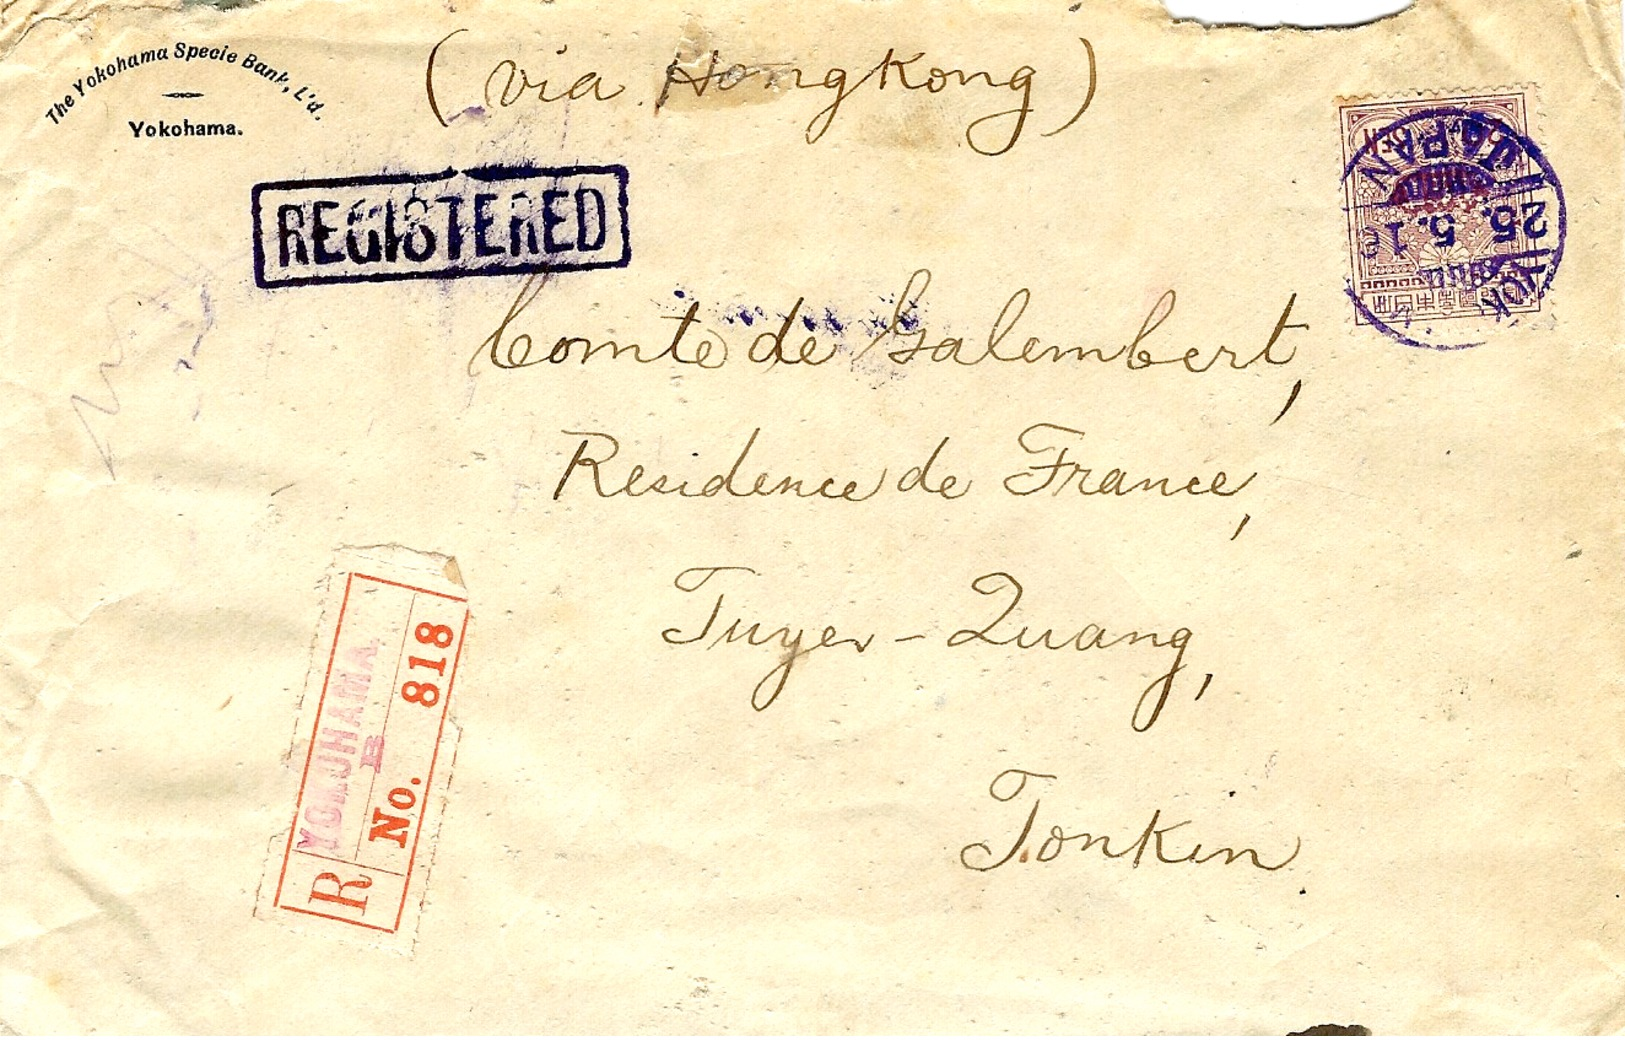 The Yokohama Specie Bank, L'd.
Yokohama.
(via Hongkong)
REGISTERED
SEN
JAPAN
25. 5. 16
YOK
Comte de Galembert,
Residence de France,
Tuyen-Quang,
Tonkin
R
YOKOHAMA
B
No. 818